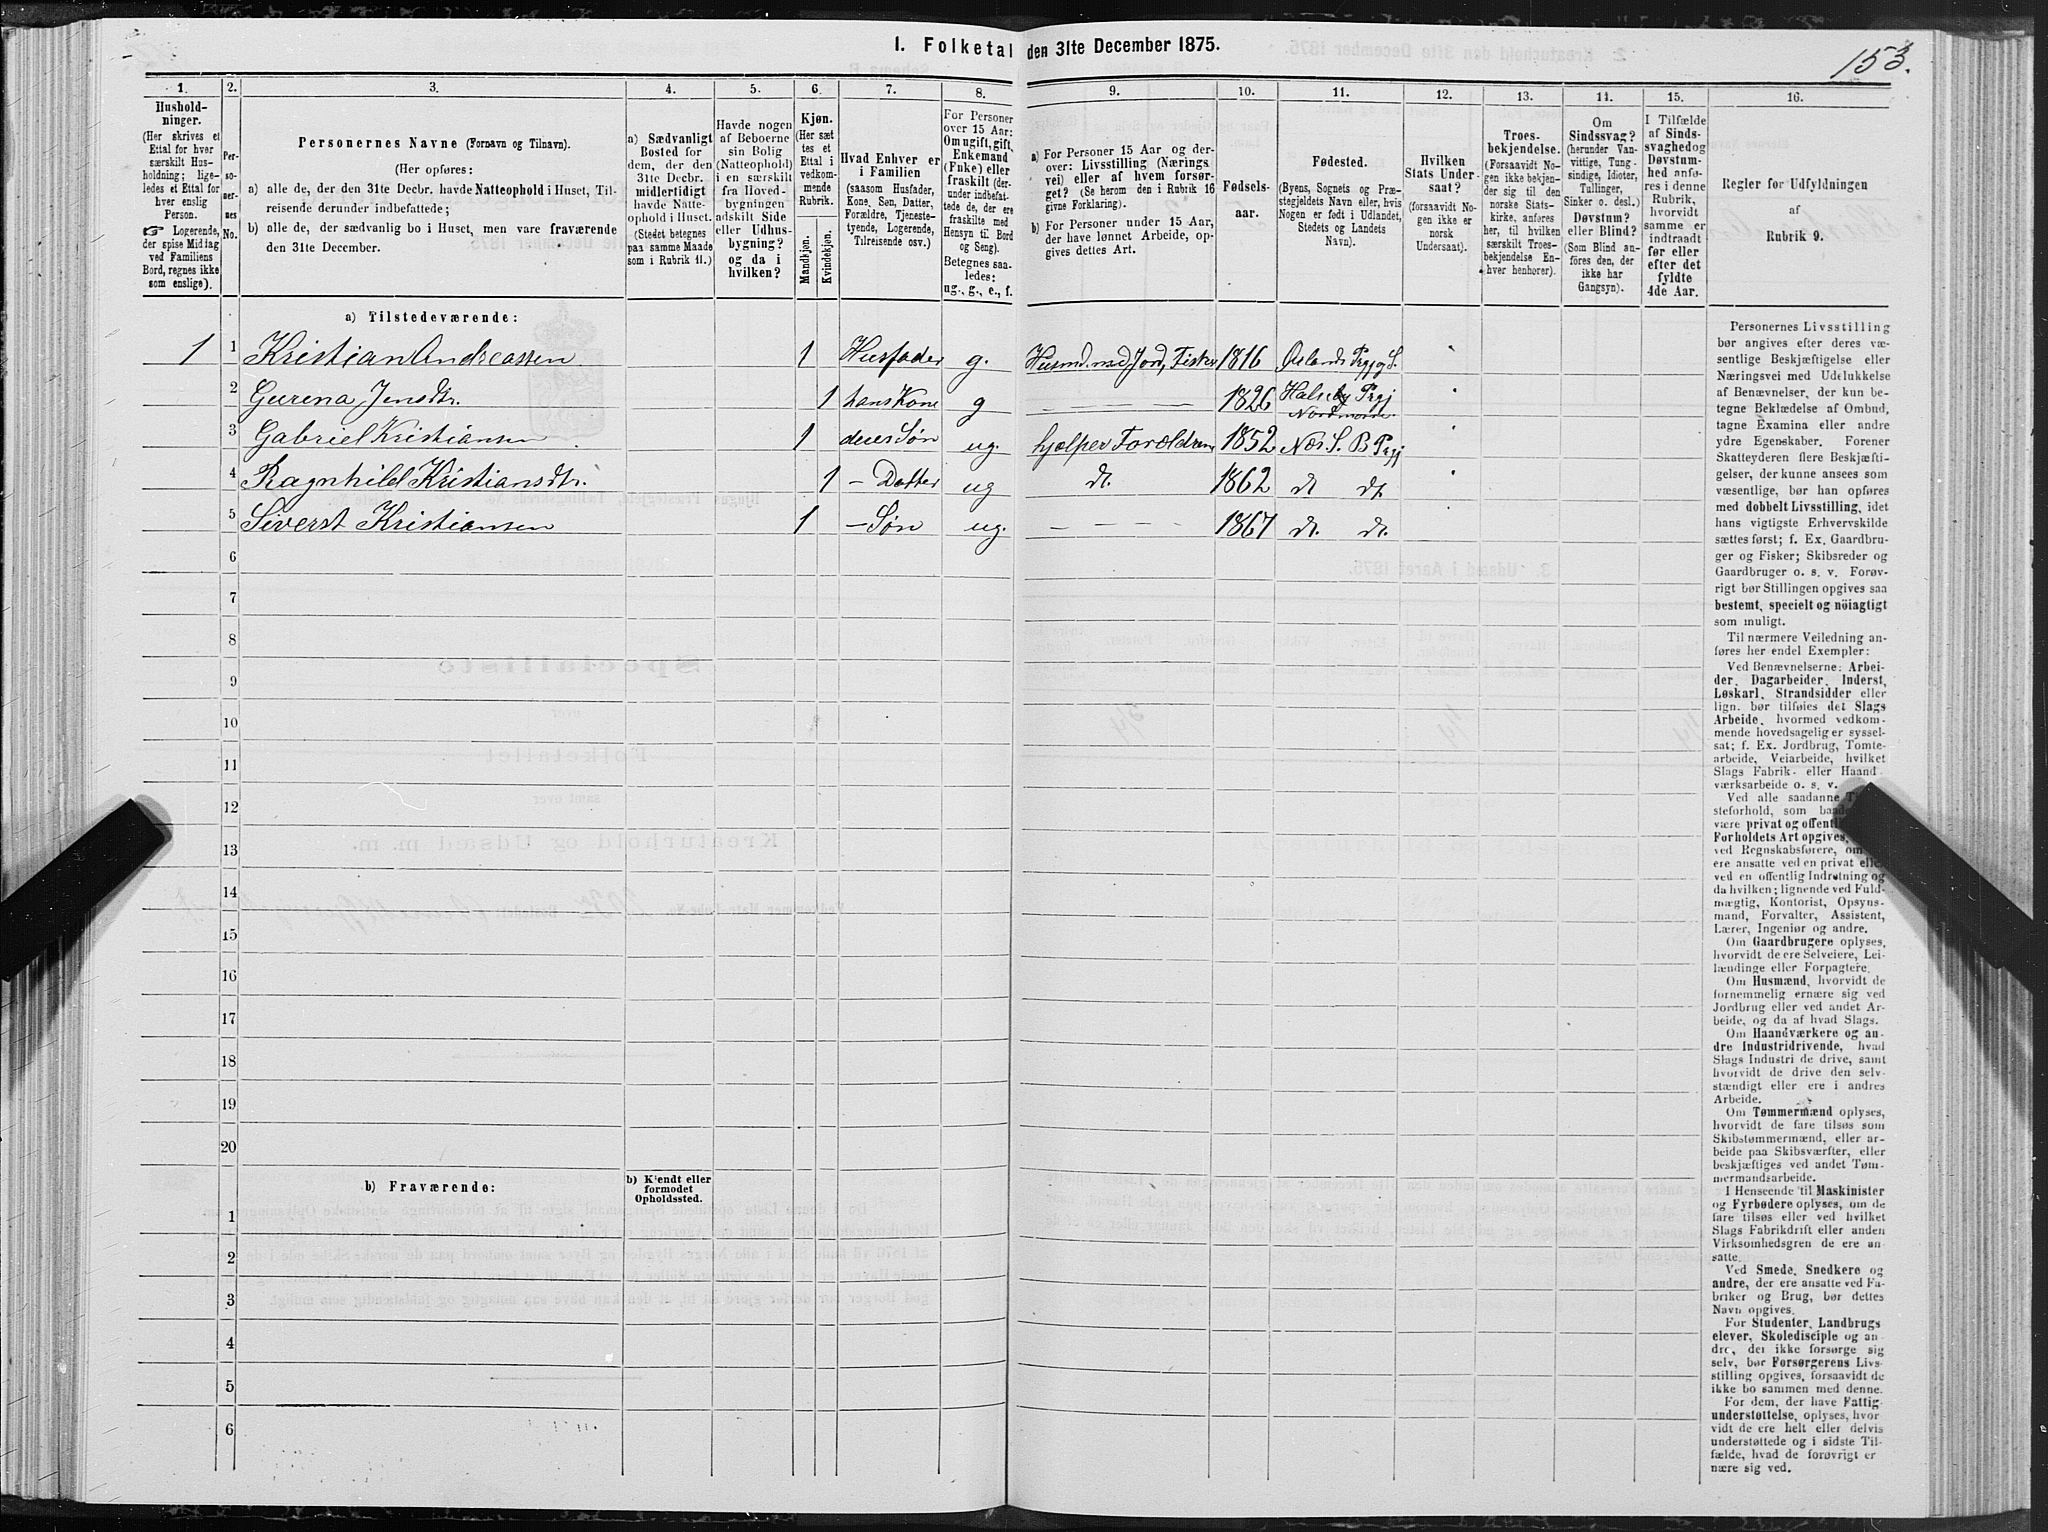 I. Folketal den 31te December 1875.
153.
1.
2.
3.
4.
5.
6.
7.
8.
9.
10.
11.
12.
13.
14.
15.
16.
Hushold-
ninger.
(Her skrives et
Ettal for hver
særskilt Hus-
holdning; lige-
ledes et Ettal for
hver enslig
Person.
☞ Logerende,
der spise Middag
ved Familiens
Bord, regnes ikke
som enslige).
Per-
so-
ner-
nes
No.
Personernes Navne (Fornavn og Tilnavn).
(Her opføres:
a) alle de, der den 31te Decbr. havde Natteophold i Huset, Til-
reisende derunder indbefattede;
b) alle de, der sædvanlig bo i Huset, men vare fraværende
den 31te December.
a) Sædvanligt
Bosted for
dem, der den
31te Decbr.
midlertidigt
havde Natte-
ophold i Huset.
(Stedet betegnes
paa samme Maade
som i Rubrik 11.)
Havde nogen
af Beboerne
sin Bolig
(Natteophold)
i en særskilt
fra Hoved-
bygningen
adskilt Side
eller Udhus-
bygning?
og da i
hvilken?
Kjøn.
(Her sæt
tes et
Ettal i
vedkom-
mende
Rubrik.
Mandkjøn.
Kvindekjøn.
Hvad Enhver er
i Familien
(saasom Husfader,
Kone, Søn, Datter,
Forældre, Tjeneste-
tyende, Logerende,
Tilreisende osv.)
For Personer
over 15 Aar:
Om ugift, gift,
Enkemand
(Enke) eller
fraskilt (der-
under indbefat-
tede de, der ere
fraskilte med
Hensyn til Bord
og Seng).
Betegnes saa-
ledes:
ug., g., e., f.
a) For Personer 15 Aar og der-
over: Livsstilling (Nærings
vei) eller af hvem forsør-
get? (Se herom den i Rubrik 16
givne Forklaring).
b) For Personer under 15 Aar,
der have lønnet Arbeide, op-
gives dettes Art.
Fødsels-
aar.
Fødested.
(Byens, Sognets og Præ-
stegjeldets Navn eller, hvis
Nogen er født i Udlandet,
Stedets og Landets
Navn).
Hvilken
Stats Under-
saat?
(forsaavidt No-
gen ikke er
norsk
Undersaat).
Troes-
bekjendelse.
(Forsaavidt No-
gen ikke bekjen-
der sig til den
norske Stats-
kirke, anføres
her, til hvilken
særskilt Troes-
bekjendelse En-
hver henhører).
Om
Sindssvag?
(herunder Van-
vittige, Tung-
sindige, Idioter,
Tullinger,
Sinker o. desl.)
Døvstum?
eller Blind?
(Som Blind an-
føres den, der
ikke har
Gangsyn).
I Tilfælde
af Sinds-
svaghed og
Døvstum-
hed anfø-
res i denne
Rubrik,
hvorvidt
samme er
indtraadt
før eller
efter det
fyldte
4de Aar.
Regler for Udfyldningen
af
Rubrik 9.
a) Tilstedeværende:
1 1 Kristian Andreassen 1 Husfader g. Husmd. med Jord, Fisker 1816 Ørlands Prgj og S.
2 Gurena Jensdtr. 1 hans Kone g — — — 1826 Halseby Prgj Nordmøre.
3 Gabriel Kristiansen 1 deres Søn ug. hjælper Forældrene 1852 Næs S. B Prgj
4 Ragnhild Kristiansdtr. 1 — Datter ug do. 1862 do do.
5 Siverst Kristiansen 1 — Søn ug. — — — 1867 do. do.
6
7
8
9
10
11
12
13
14
15
16
17
18
19
20
b) Fraværende:
b) Kjendt eller
formodet
Opholdssted.
1
2
3
4
5
6
Personernes Livsstilling
bør angives efter deres væ-
sentlige Beskjæftigelse eller
Næringsvei med Udelukkelse
af Benævnelser, der kun be-
tegne Beklædelse af Ombud,
tagne Examina eller andre
ydre Egenskaber. Forener
Skatteyderen flere Beskjæfti-
gelser, der kunne ansees som
væsentlige, bør han opføres
med dobbelt Livsstilling, idet
hans vigtigste Erhvervskilde
sættes først; f. Ex. Gaardbru-
ger og Fisker; Skibsreder og
Gaardbruger o. s. v. Forøv-
rigt bør Stillingen opgives saa
bestemt, specielt og nøiagtigt
som muligt.
Til nærmere Veiledning an-
føres her endel Exempler:
Ved Benævnelserne: Arbei-
der, Dagarbeider, Inderst,
Løskarl, Strandsidder eller
lign. bør tilføies det Slags
Arbeide, hvormed vedkom-
mende hovedsagelig er syssel-
sat; f. Ex. Jordbrug, Tomte-
arbeide, Veiarbeide, hvilket
Slags Fabrik- eller Haand-
værksarbeide o. s. v.
Ved alle saadanne
steforhold, som
være privat og
Forholdets Art opgives,
ved Regnskabsførere, om
ere ansatte ved en privat eller
ved en offentlig Indretning og
da hvilken; lignende ved Fuld-
mægtig, Kontorist, Opsyns-
mand, Forvalter, Assistent,
Lærer, Ingeniør og andre.
Om Gaardbrugere oplyses,
hvorvidt de ere Selveiere, Lei-
lændinge eller Forpagtere.
Om Husmænd, hvorvidt de
fornemmelig ernære sig ved
Jordbrug eller ved andet Ar-
beide, og da af hvad Slags.
Om Haandværkere og an-
dre Industridrivende, hvad
Slags Industri de drive, samt
hvorvidt de drive den selv-
stændigt eller ere i andres
Arbeide.
Om Tømmermænd oplyses,
hvorvidt de fare tilsøs som
Skibstømmermænd, eller ar-
beide paa Skibsværfter, eller
beskjæftiges ved andet Tøm-
mermandsarbeide.
I Henseende til Maskinister
og Fyrbødere oplyses, om de
fare tilsøs eller ved hvilket
Slags Fabrikdrift eller anden
Virksomhedsgren de ere an-
satte.
Ved Smede, Snedkere og
andre, der ere ansatte ved Fa-
briker og Brug, bør dettes
Navn opgives.
For Studenter, Landbrugs
elever, Skoledisciple og an-
dre, der ikke forsørge sig
selv, bør Forsørgerens Livs-
stilling opgives, forsaavidt de
ikke bo sammen med denne.
For dem, der have Fattig
understøttelse, oplyses, hvor
vidt de ere helt eller delvis
understøttede og i sidste Til-
fælde, hvad de forøvrigt er
nære sig ved.